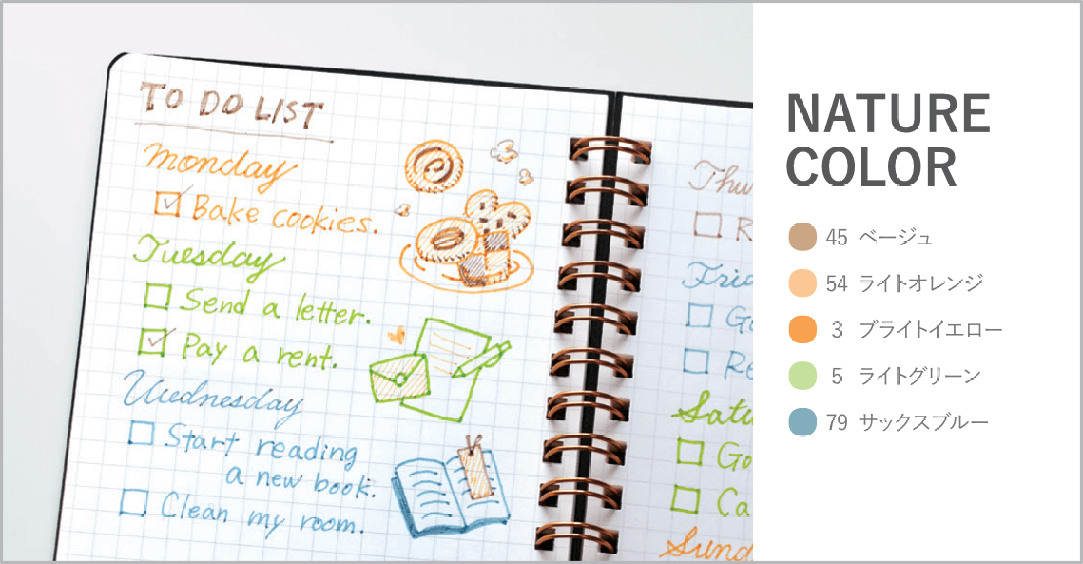 TO DO LIST
monday
Bake cookies.
Tuesday
Send a letter.
Pay a rent.
Wednesday
Start reading
a new book.
Clean my room.
NATURE
COLOR
45 ベージュ
54 ライトオレンジ
3 ブライトイエロー
5 ライトグリーン
79 サックスブルー